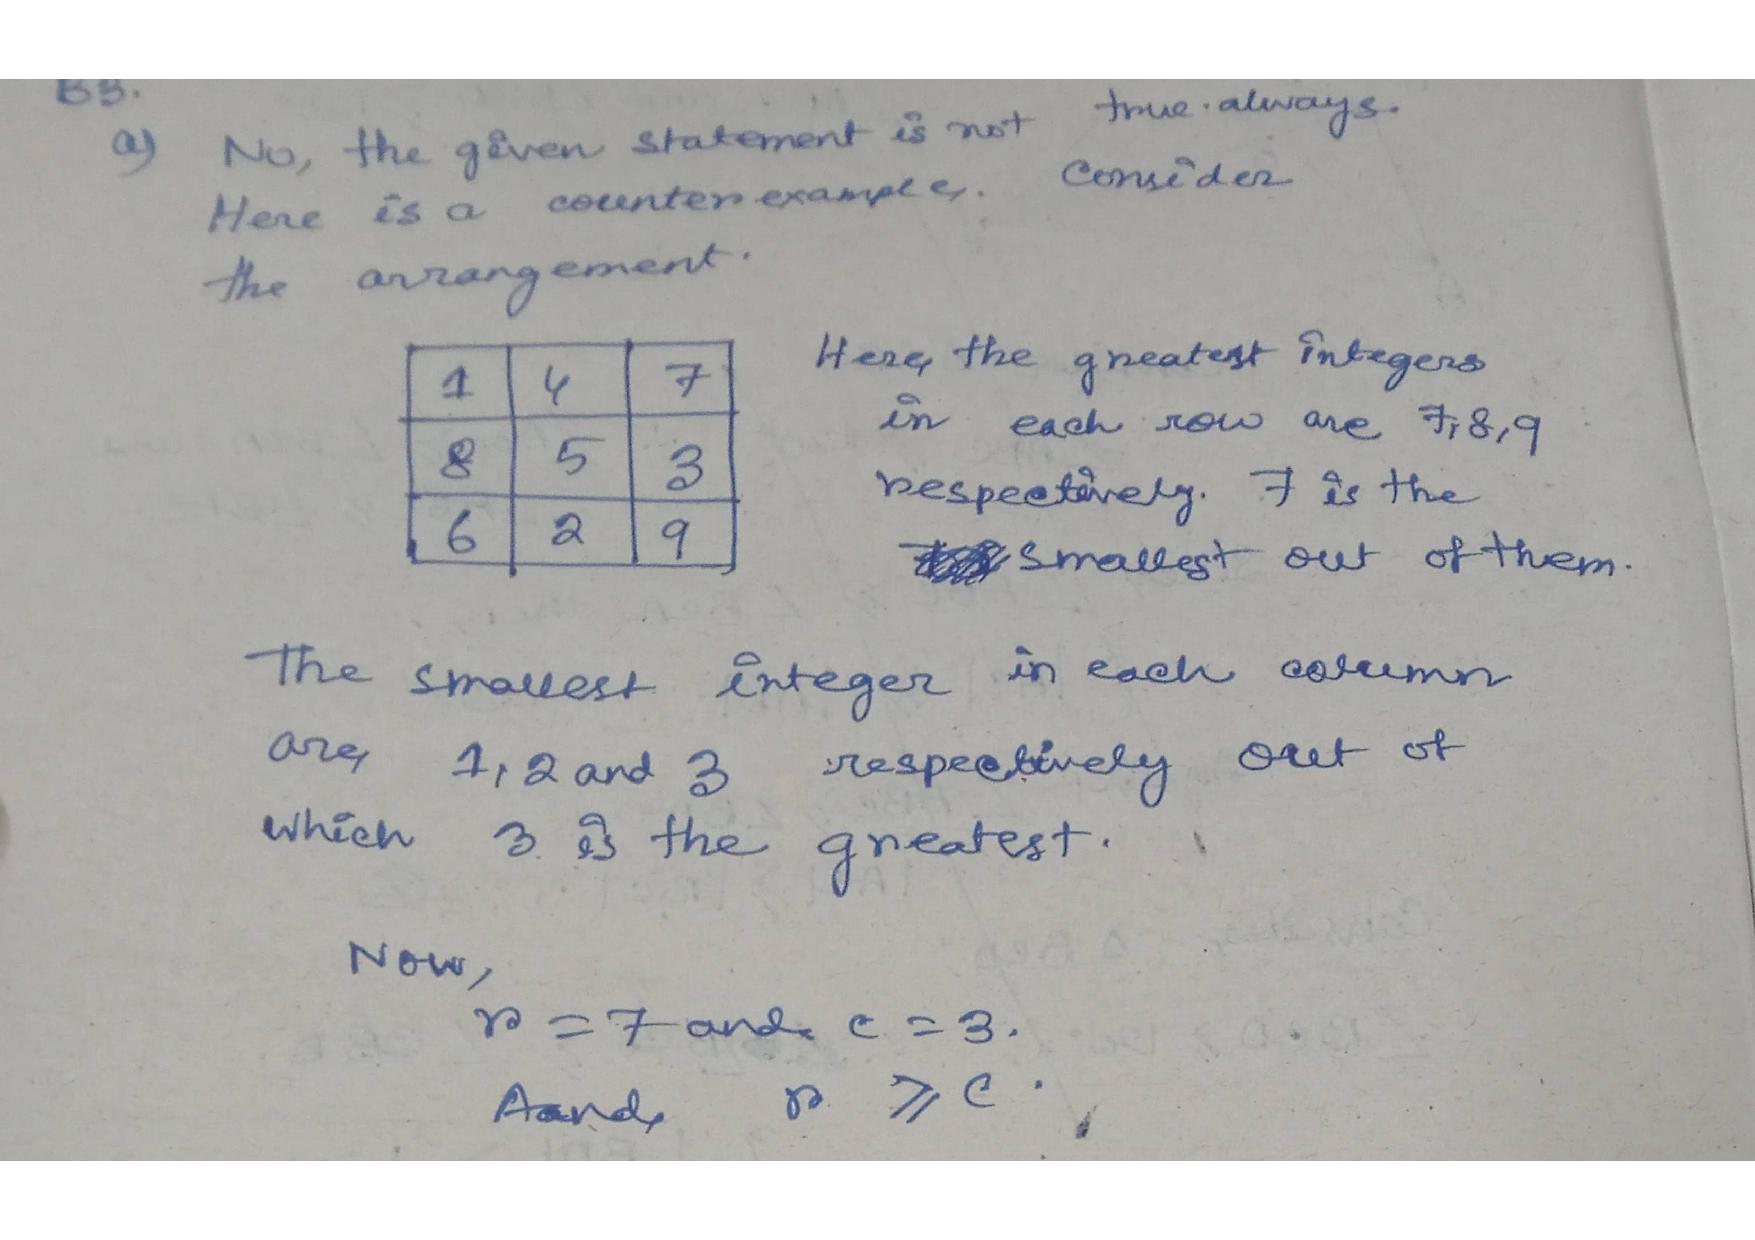 B3.
a) No, the given statement is not true always.
Here is a counter example. Consider
the arrangement.
1 4 7
8 5 3
6 2 9
Here, the greatest integers
in each row are 7, 8, 9
respectively. 7 is the
smallest out of them.
The smallest integer in each column
are, 1, 2 and 3 respectively out of
which 3 is the greatest.
Now,
r = 7 and c = 3.
Aand, r ⩾ c.